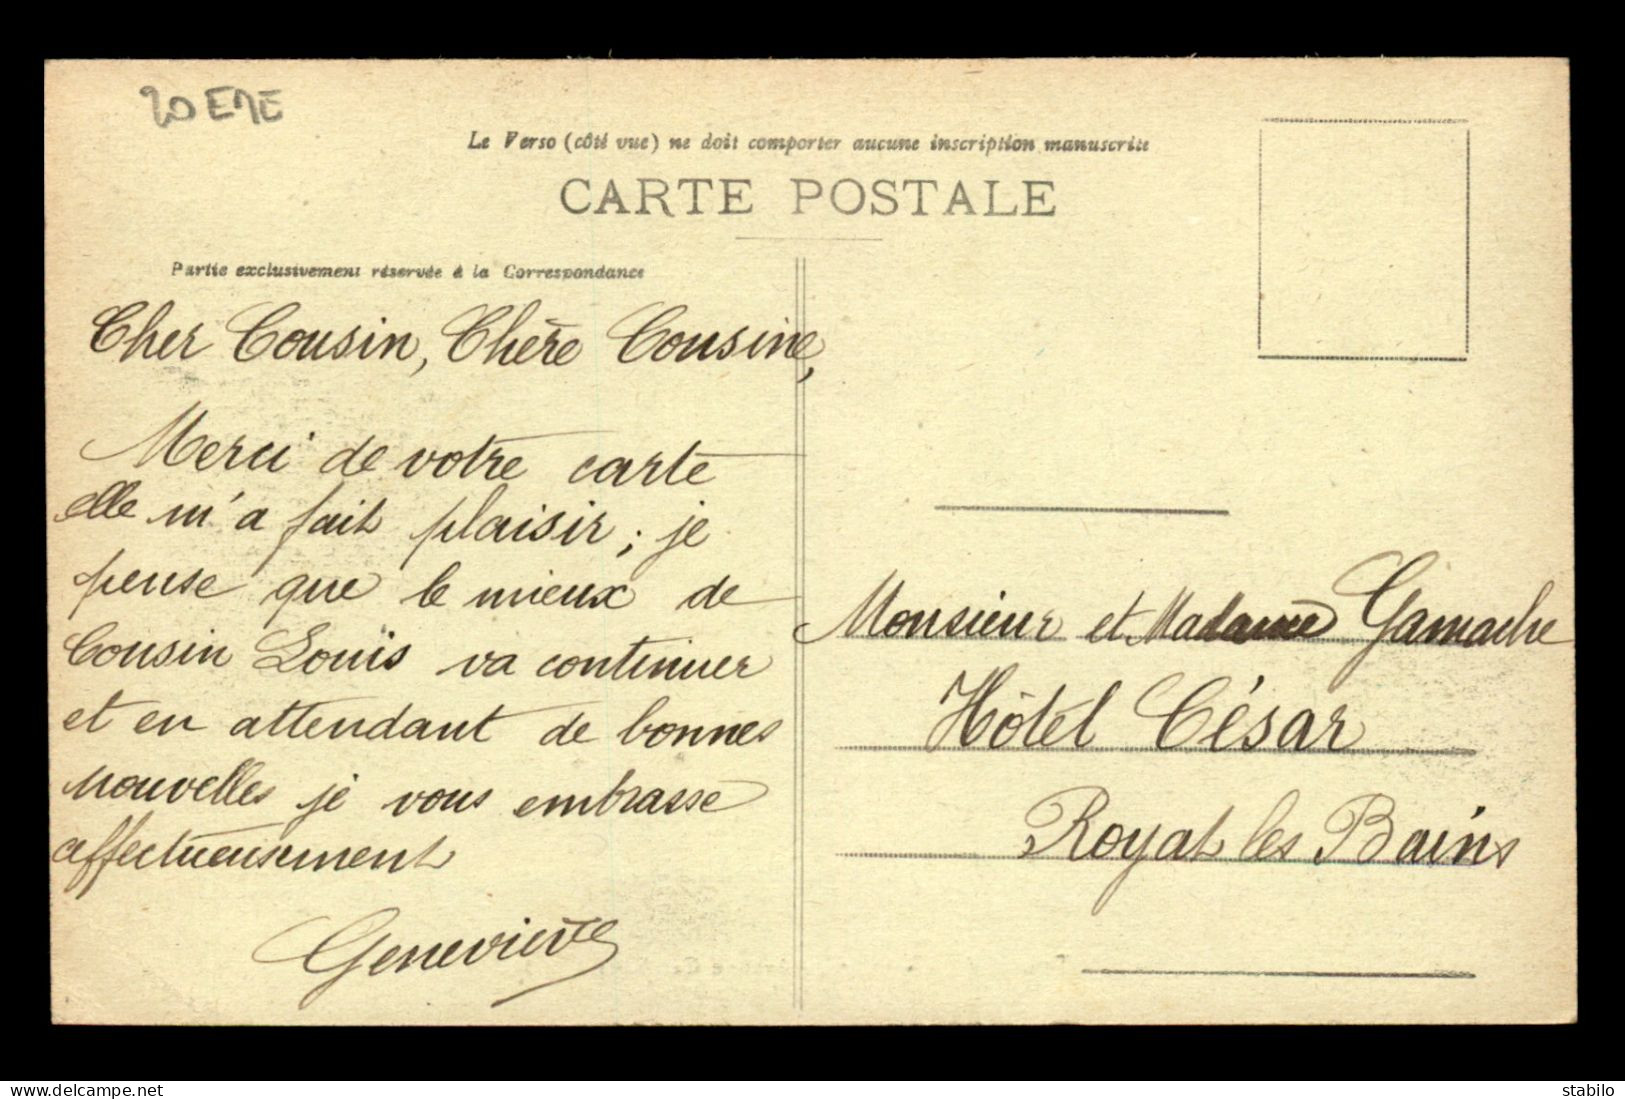 20 EME
Le Verso (côté vue) ne doit comporter aucune inscription manuscrite
CARTE POSTALE
Partie exclusivement réservée à la Correspondance
Cher Cousin, Chère Cousine,
Merci de votre carte
elle m'a fait plaisir ; je
pense que le mieux de
Cousin Louis va continuer
et en attendant de bonnes
nouvelles je vous embrasse
affectueusement
Geneviève
Monsieur et Madame Gamache
Hôtel César
Royat les Bains
www.delcampe.net
stabilo